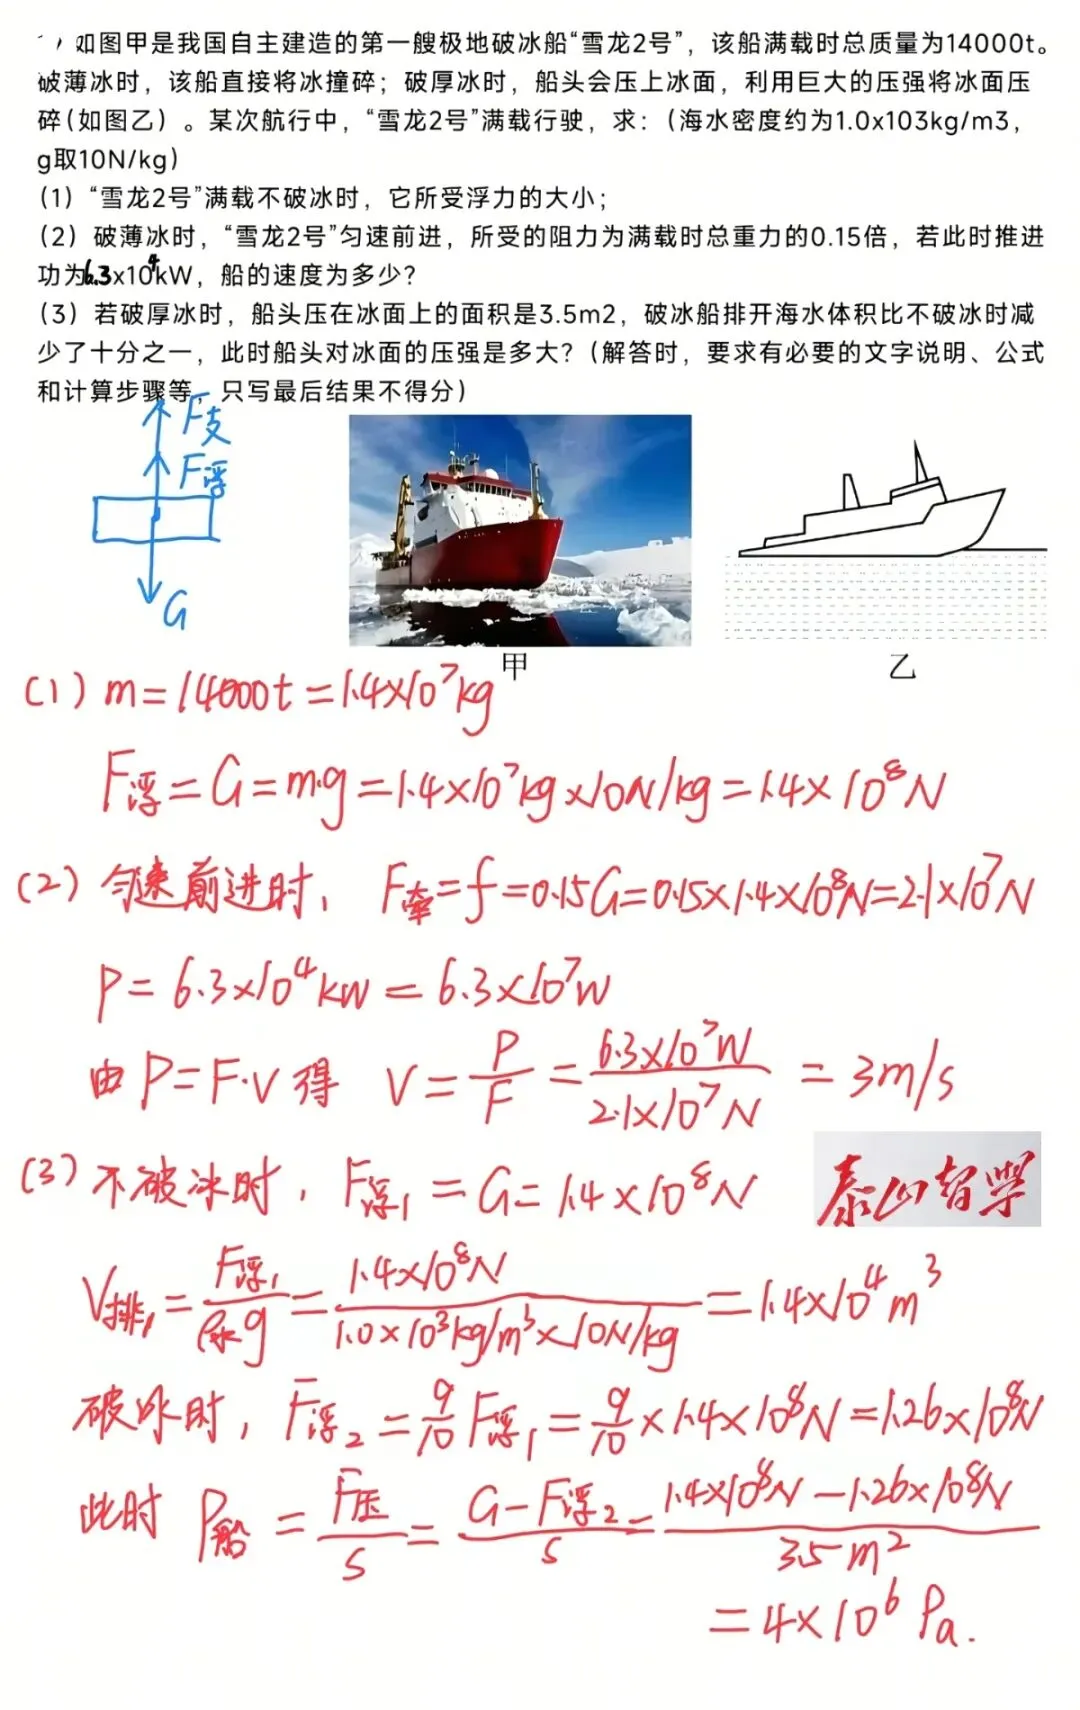 如图甲是我国自主建造的第一艘极地破冰船“雪龙2号”，该船满载时总质量为14000t。
破薄冰时，该船直接将冰撞碎；破厚冰时，船头会压上冰面，利用巨大的压强将冰面压
碎(如图乙）。某次航行中，“雪龙2号”满载行驶，求：（海水密度约为1.0x103kg/m3，
g取10N/kg）
(1)“雪龙2号”满载不破冰时，它所受浮力的大小；
(2）破薄冰时，“雪龙2号”匀速前进，所受的阻力为满载时总重力的0.15倍，若此时推进
功为6.3x10⁴kW，船的速度为多少？
(3）若破厚冰时，船头压在冰面上的面积是3.5m2，破冰船排开海水体积比不破冰时减
少了十分之一，此时船头对冰面的压强是多大？（解答时，要求有必要的文字说明、公式
和计算步骤等，只写最后结果不得分）
F支
F浮
G
甲
乙
(1) m=14000t=1.4×10⁷kg
F浮=G=m·g=1.4×10⁷kg×10N/kg=1.4×10⁸N
(2) 匀速前进时, F牵=f=0.15G=0.15×1.4×10⁸N=2.1×10⁷N
P=6.3×10⁴kW=6.3×10⁷W
由P=F·V得 V=P/F=6.3×10⁷W/2.1×10⁷N=3m/s
(3) 不破冰时, F浮1=G=1.4×10⁸N
泰山智学
V排1=F浮1/ρ水g=1.4×10⁸N/1.0×10³kg/m³×10N/kg=1.4×10⁴m³
破冰时, F浮2=9/10F浮1=9/10×1.4×10⁸N=1.26×10⁸N
此时 P船=F压/S=G-F浮2/S=1.4×10⁸N-1.26×10⁸N/3.5m²
=4×10⁶Pa.